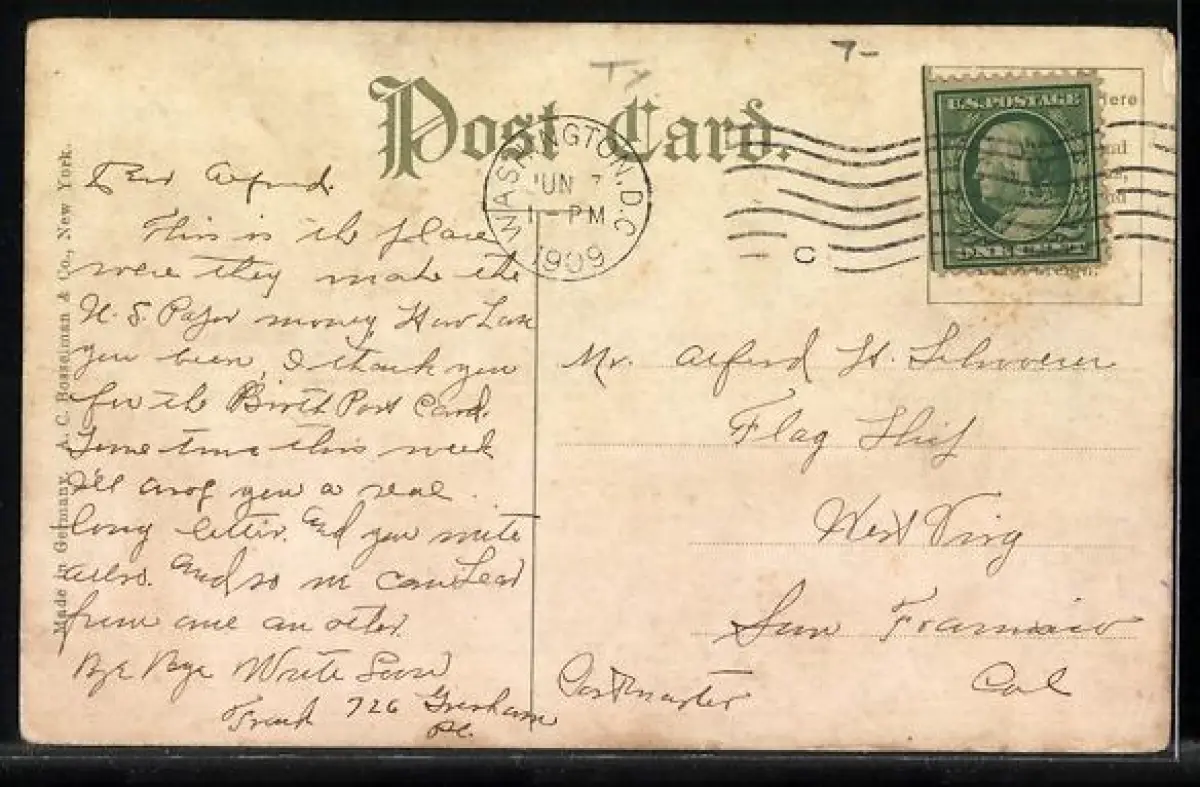 7-
Post Card.
WASHINGTON, D.C.
JUN 7
1-PM
1909
C
U.S. POSTAGE
ONE CENT
Here
Made in Germany. A. C. Bosselman & Co., New York.
Alfred.
This is the place
were they make the
U. S Paper money, How Have
you been, I thank you
for the Birth Post Card.
Some time this week
I'll drop you a real
long letter. and you write
also. And so we can Hear
from one an other
Bye Bye Write Soon
Frank 726 Gresham
Pl.
Mr. Alfred H.
Flag Ship
West Virg
San Francisco
Cal
Postmaster